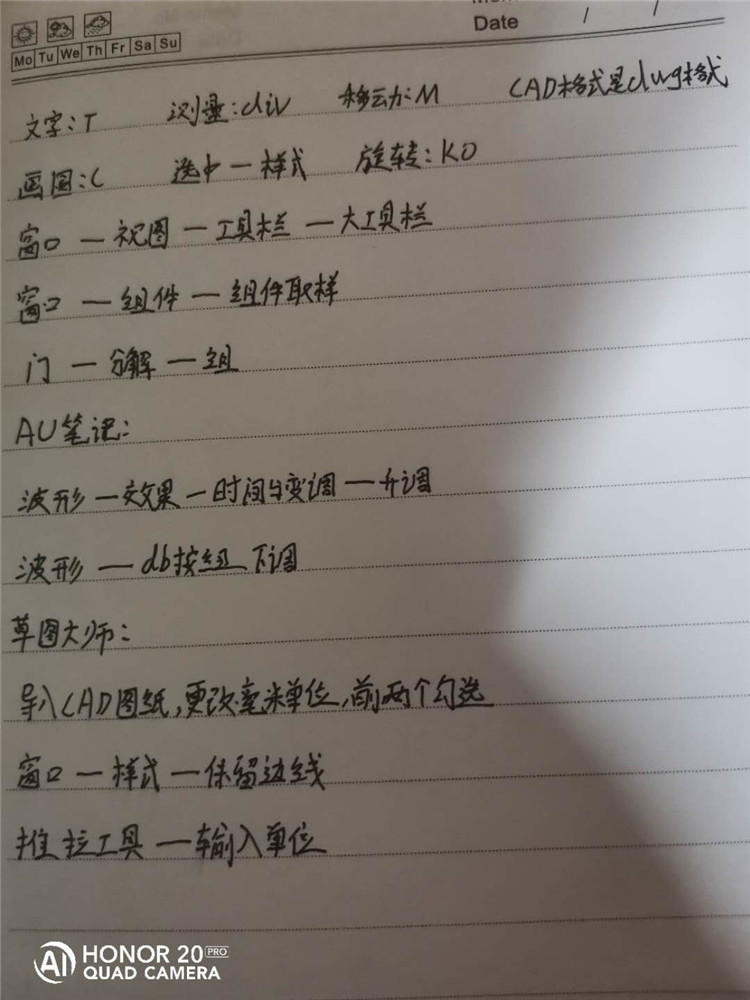 Date / /
Mo Tu We Th Fr Sa Su
文字:T 测量:div 移动:M CAD格式是dwg格式
画图:C 选中一样式 旋转:KO
窗口一视图一工具栏一大工具栏
窗口一组件一组件取样
门一分解一组
AU笔记:
波形一效果一时间与变调一升调
波形一db按钮下调
草图大师:
导入CAD图纸,更改毫米单位,前两个勾选
窗口一样式一保留边线
推拉工具一输入单位
AI HONOR 20 PRO
QUAD CAMERA